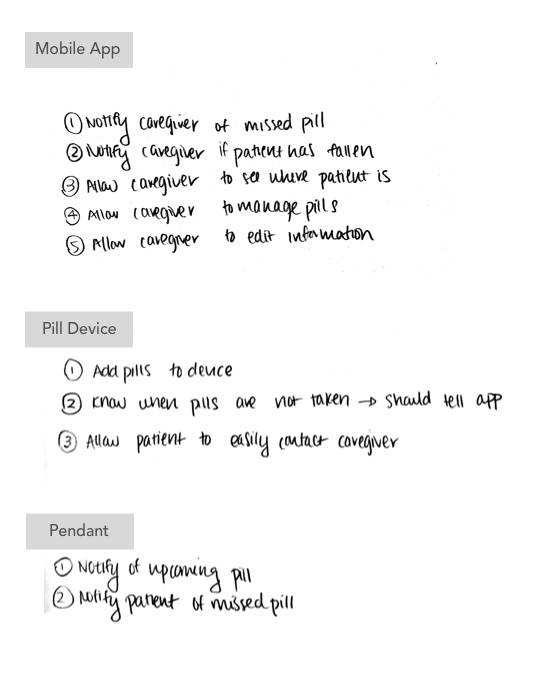 Mobile App
① Notify caregiver of missed pill
② Notify caregiver if patient has fallen
③ Allow caregiver to see where patient is
④ Allow caregiver to manage pills
⑤ Allow caregiver to edit information
Pill Device
① Add pills to device
② Know when pills are not taken → should tell app
③ Allow patient to easily contact caregiver
Pendant
① Notify of upcoming pill
② Notify patient of missed pill